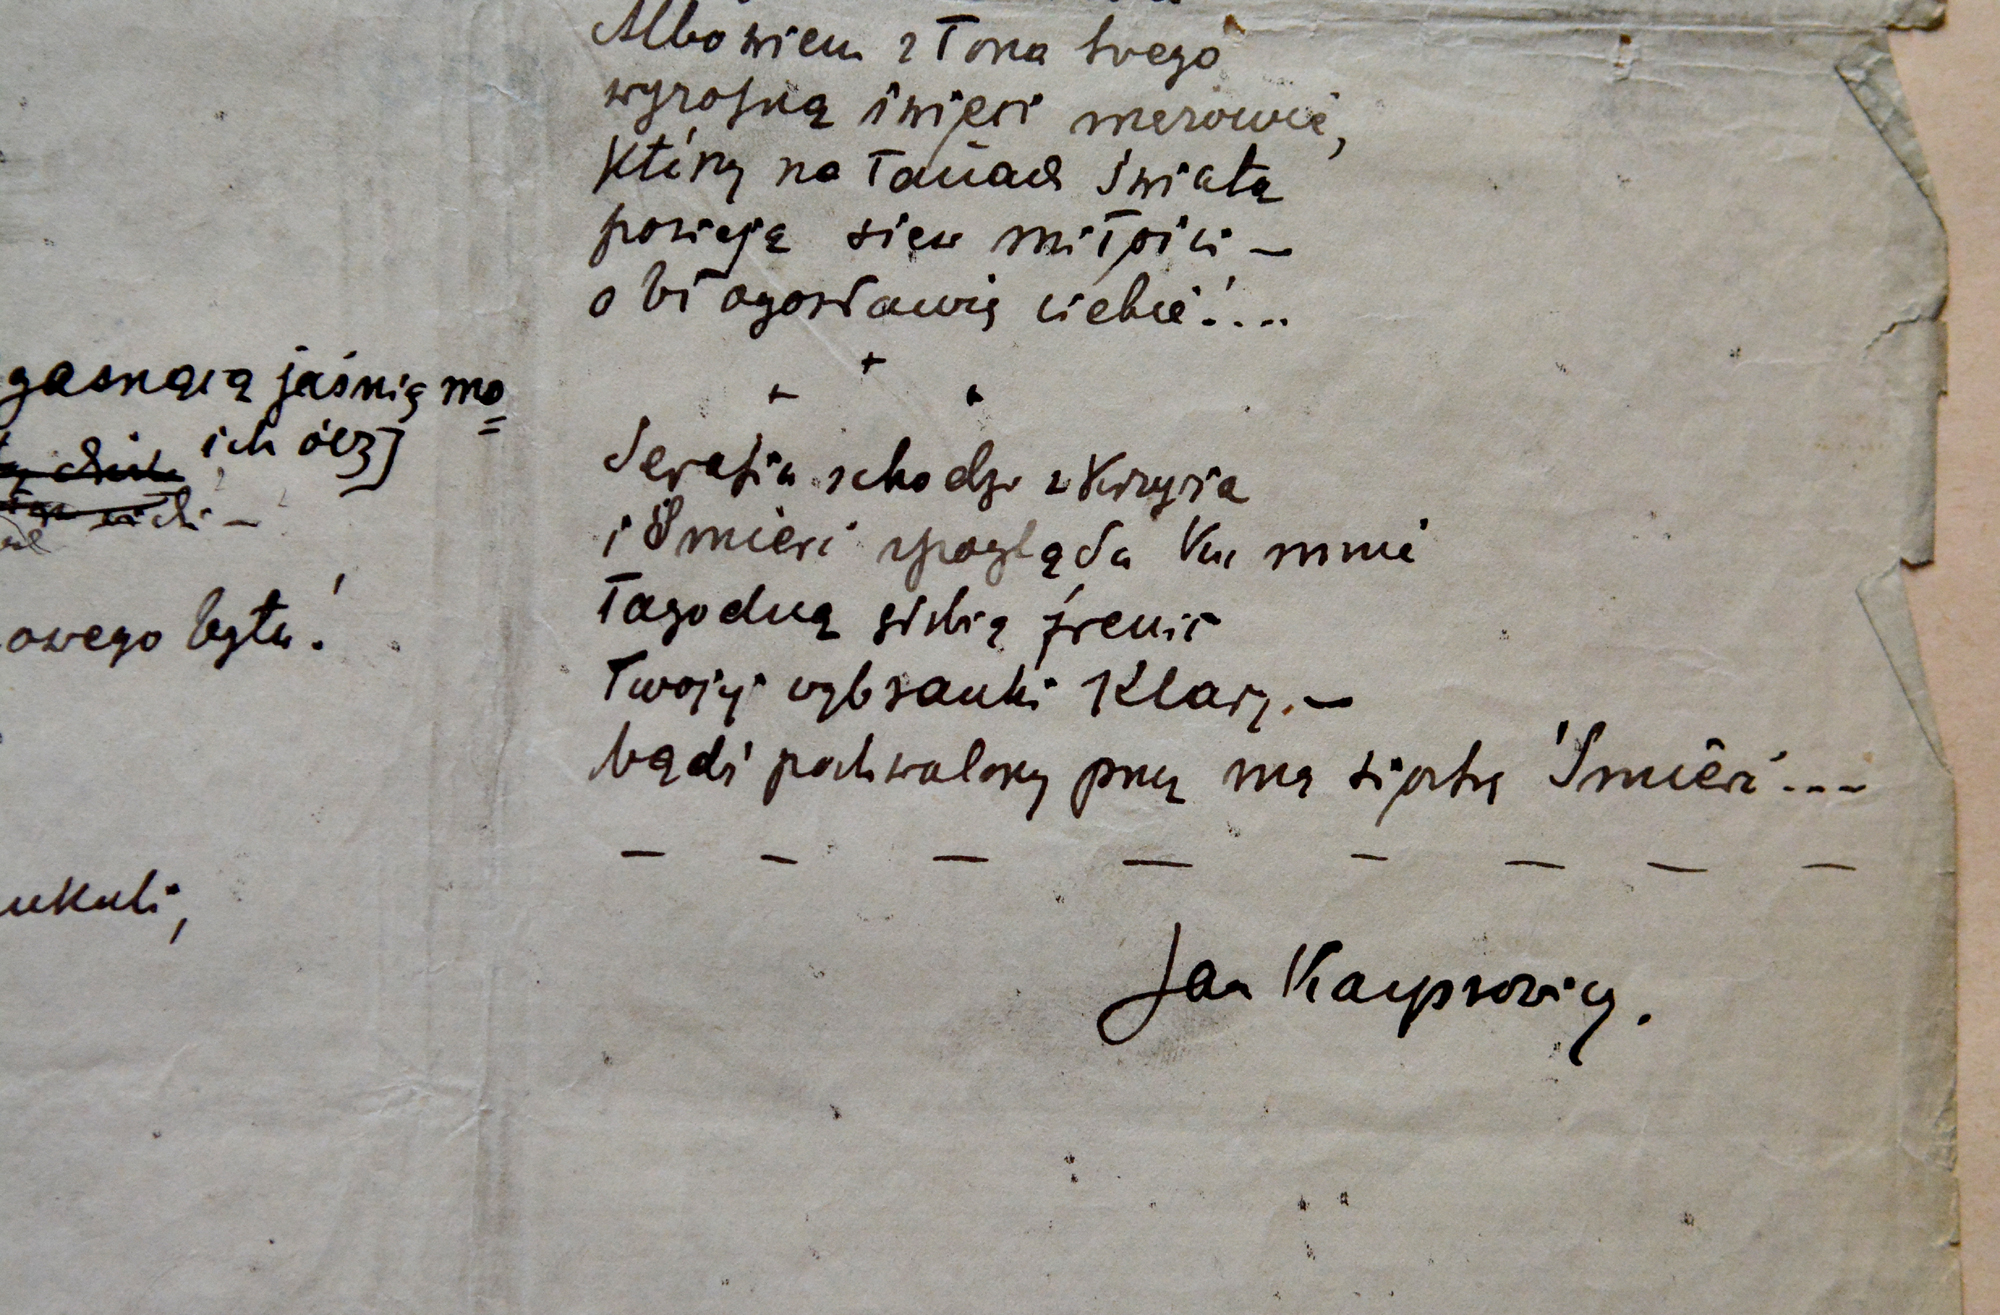 gasnącą jaśnią mo=
ich ócz]
owego bytu!
Albowiem z łona twego
wyrosną święci mężowie,
którzy na łanach świata
posieją siew miłości —
o błogosławię ciebie!...
+ + +
Serafin schodzi z Krzyża
i Śmierć spogląda ku mnie
łagodną głębią źrenic
Twojej wybranki Klary. —
bądź pochwalony przez mą siostrę Śmierć...
— — — — — — — —
Jan Kasprowicz.